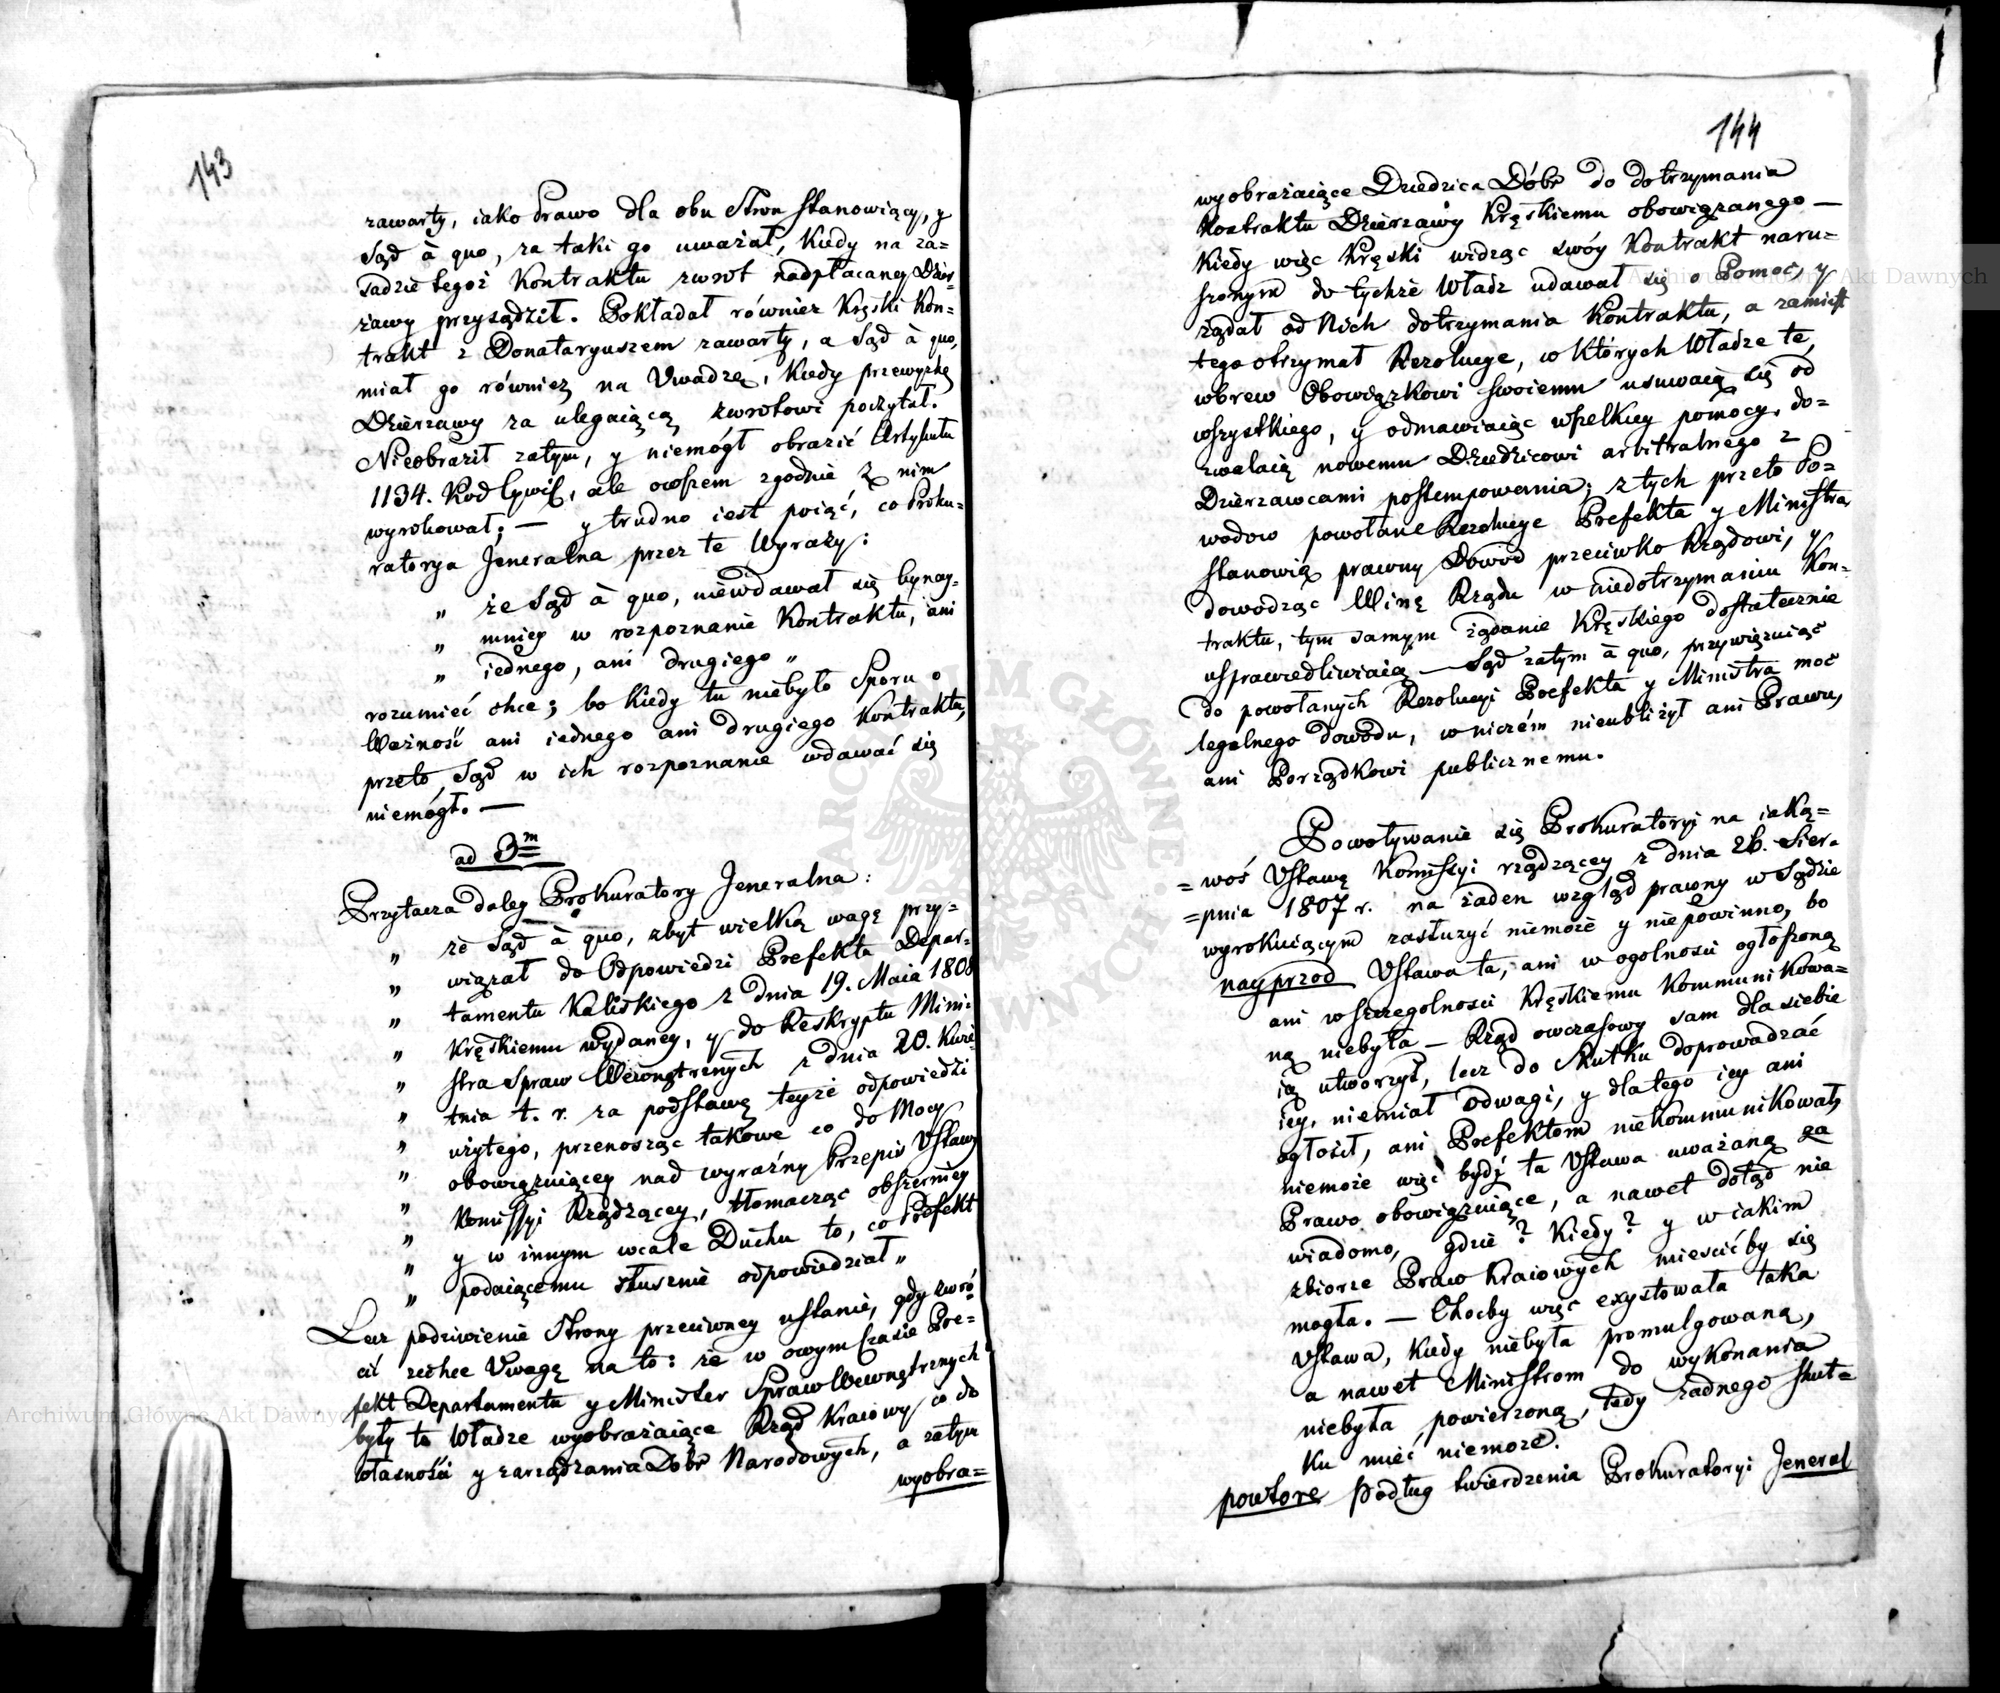 143
zawarty, iako Prawo dla obu Stron stanowiący, y
Sąd à quo, za taki go uważał, kiedy na za=
sadzie tegoż Kontraktu zwrot nadpłacaney Dzier=
żawy przysądził. Pokładał również Kręski Kon=
trakt z Donataryuszem zawarty, a Sąd à quo,
miał go również na Uwadze, kiedy przewyżkę
Dzierzawy za ulegaiącą zwrotowi poczytał.
Nieobraził zatym, y niemógł obrazić Artykułu
1134. Kod Cywil, ale owszem zgodnie z nim
wyrokował; — y trudno iest poiąć, co Proku=
ratorya Jeneralna przez te Wyrazy:
„ że Sąd à quo, niewdawał się bynay=
„ mniey w rozpoznanie Kontraktu, ani
„ iednego, ani drugiego „
rozumieć chce; bo kiedy tu niebyło Sporu o
Ważność ani iednego ani drugiego Kontraktu,
przeto Sąd w ich rozpoznanie wdawać się
niemógł. —
ad 3m
Przytacza daley Prokuratory Jeneralna:
„ że Sąd à quo, zbyt wielką wagę przy=
„ wiązał do Odpowiedzi Prefekta Depar=
„ tamentu Kaliskiego z dnia 19. Maia 1808
„ Kręskiemu wydaney, y do Reskryptu Mini=
„ stra Spraw Wewnętrznych z dnia 20. Kwie=
„ tnia t. r. za podstawę teyże odpowiedzi
„ użytego, przenosząc takowe co do Mocy
„ obowiązuiącey nad wyraźny Przepis Ustawy
„ Komissyi Rządzącey, tłomacząc obszerniey
„ y w innym wcale Duchu to, co Prefekt
„ podaiącemu słusznie odpowiedział „
Lecz podziwienie Strony przeciwney ustanie, gdy zwró=
cić zechce Uwagę na to: że w owym Czasie Pre=
fekt Departamentu y Minister Spraw Wewnętrznych
były to Władze wyobrażaiące Rząd Kraiowy co do
własności y zarządzania Dóbr Narodowych, a zatym
wyobra=
144
wyobrażaiące Dziedzica Dóbr do dotrzymania
Kontraktu Dzierzawy Kręskiemu obowiązanego —
Kiedy więc Kręski widząc swóy Kontrakt naru=
szonym do tychże Władz udawał się o Pomoc, y
rządał od Nich dotrzymania Kontraktu, a zamiast
tego otrzymał Rezolucye, w których Władze te,
wbrew Obowiązkowi swoiemu usuwaią się od
wszystkiego, y odmawiaiąc wszelkiey pomocy, do=
zwalaią nowemu Dziedzicowi arbitralnego z
Dzierzawcami postempowania; z tych przeto Po=
wodow powołane Rezolucye Prefekta y Ministra
stanowią prawny Dowód przeciwko Rządowi, y
dowodząc Winę Rządu w niedotrzymaniu Kon=
traktu, tym samym żądanie Kręskiego dostatecznie
usprawiedliwiaią — Sąd zatym à quo, przywięzuiąc
do powołanych Rezolucyi Prefekta y Ministra moc
legalnego dowodu, w niczém nieubliżył ani Prawu,
ani Porządkowi publicznemu.
Powoływanie się Prokuratoryi na iaką=
=woś Ustawę Komissyi rządzącey z dnia 26. Sier=
=pnia 1807 r. na żaden wzgląd prawny w Sądzie
wyrokuiącym zasłużyć niemoże y niepowinno, bo
nayprzod Ustawa ta, ani w ogolności ogłoszoną
ani w szczegolności Kręskiemu Kommunikowa=
ną niebyła — Rząd owczasowy sam dla siebie
ią utworzył, lecz do Skutku doprowadzać
iey, niemiał odwagi, y dlatego iey ani
ogłosił, ani Prefektom niekommunikował,
niemoże więc bydź ta Ustawa uważaną za
Prawo obowięzuiące, a nawet dotąd nie
wiadomo, gdzie? Kiedy? y w iakim
zbiorze Praw Kraiowych mieścićby się
mogła. — Choćby więc exystowała taka
Ustawa, kiedy niebyła promulgowaną,
a nawet Ministrom do wykonania
niebyła powierzoną, tedy żadnego skut=
ku mieć niemoże.
powtore Podług twierdzenia Prokuratoryi Jeneral